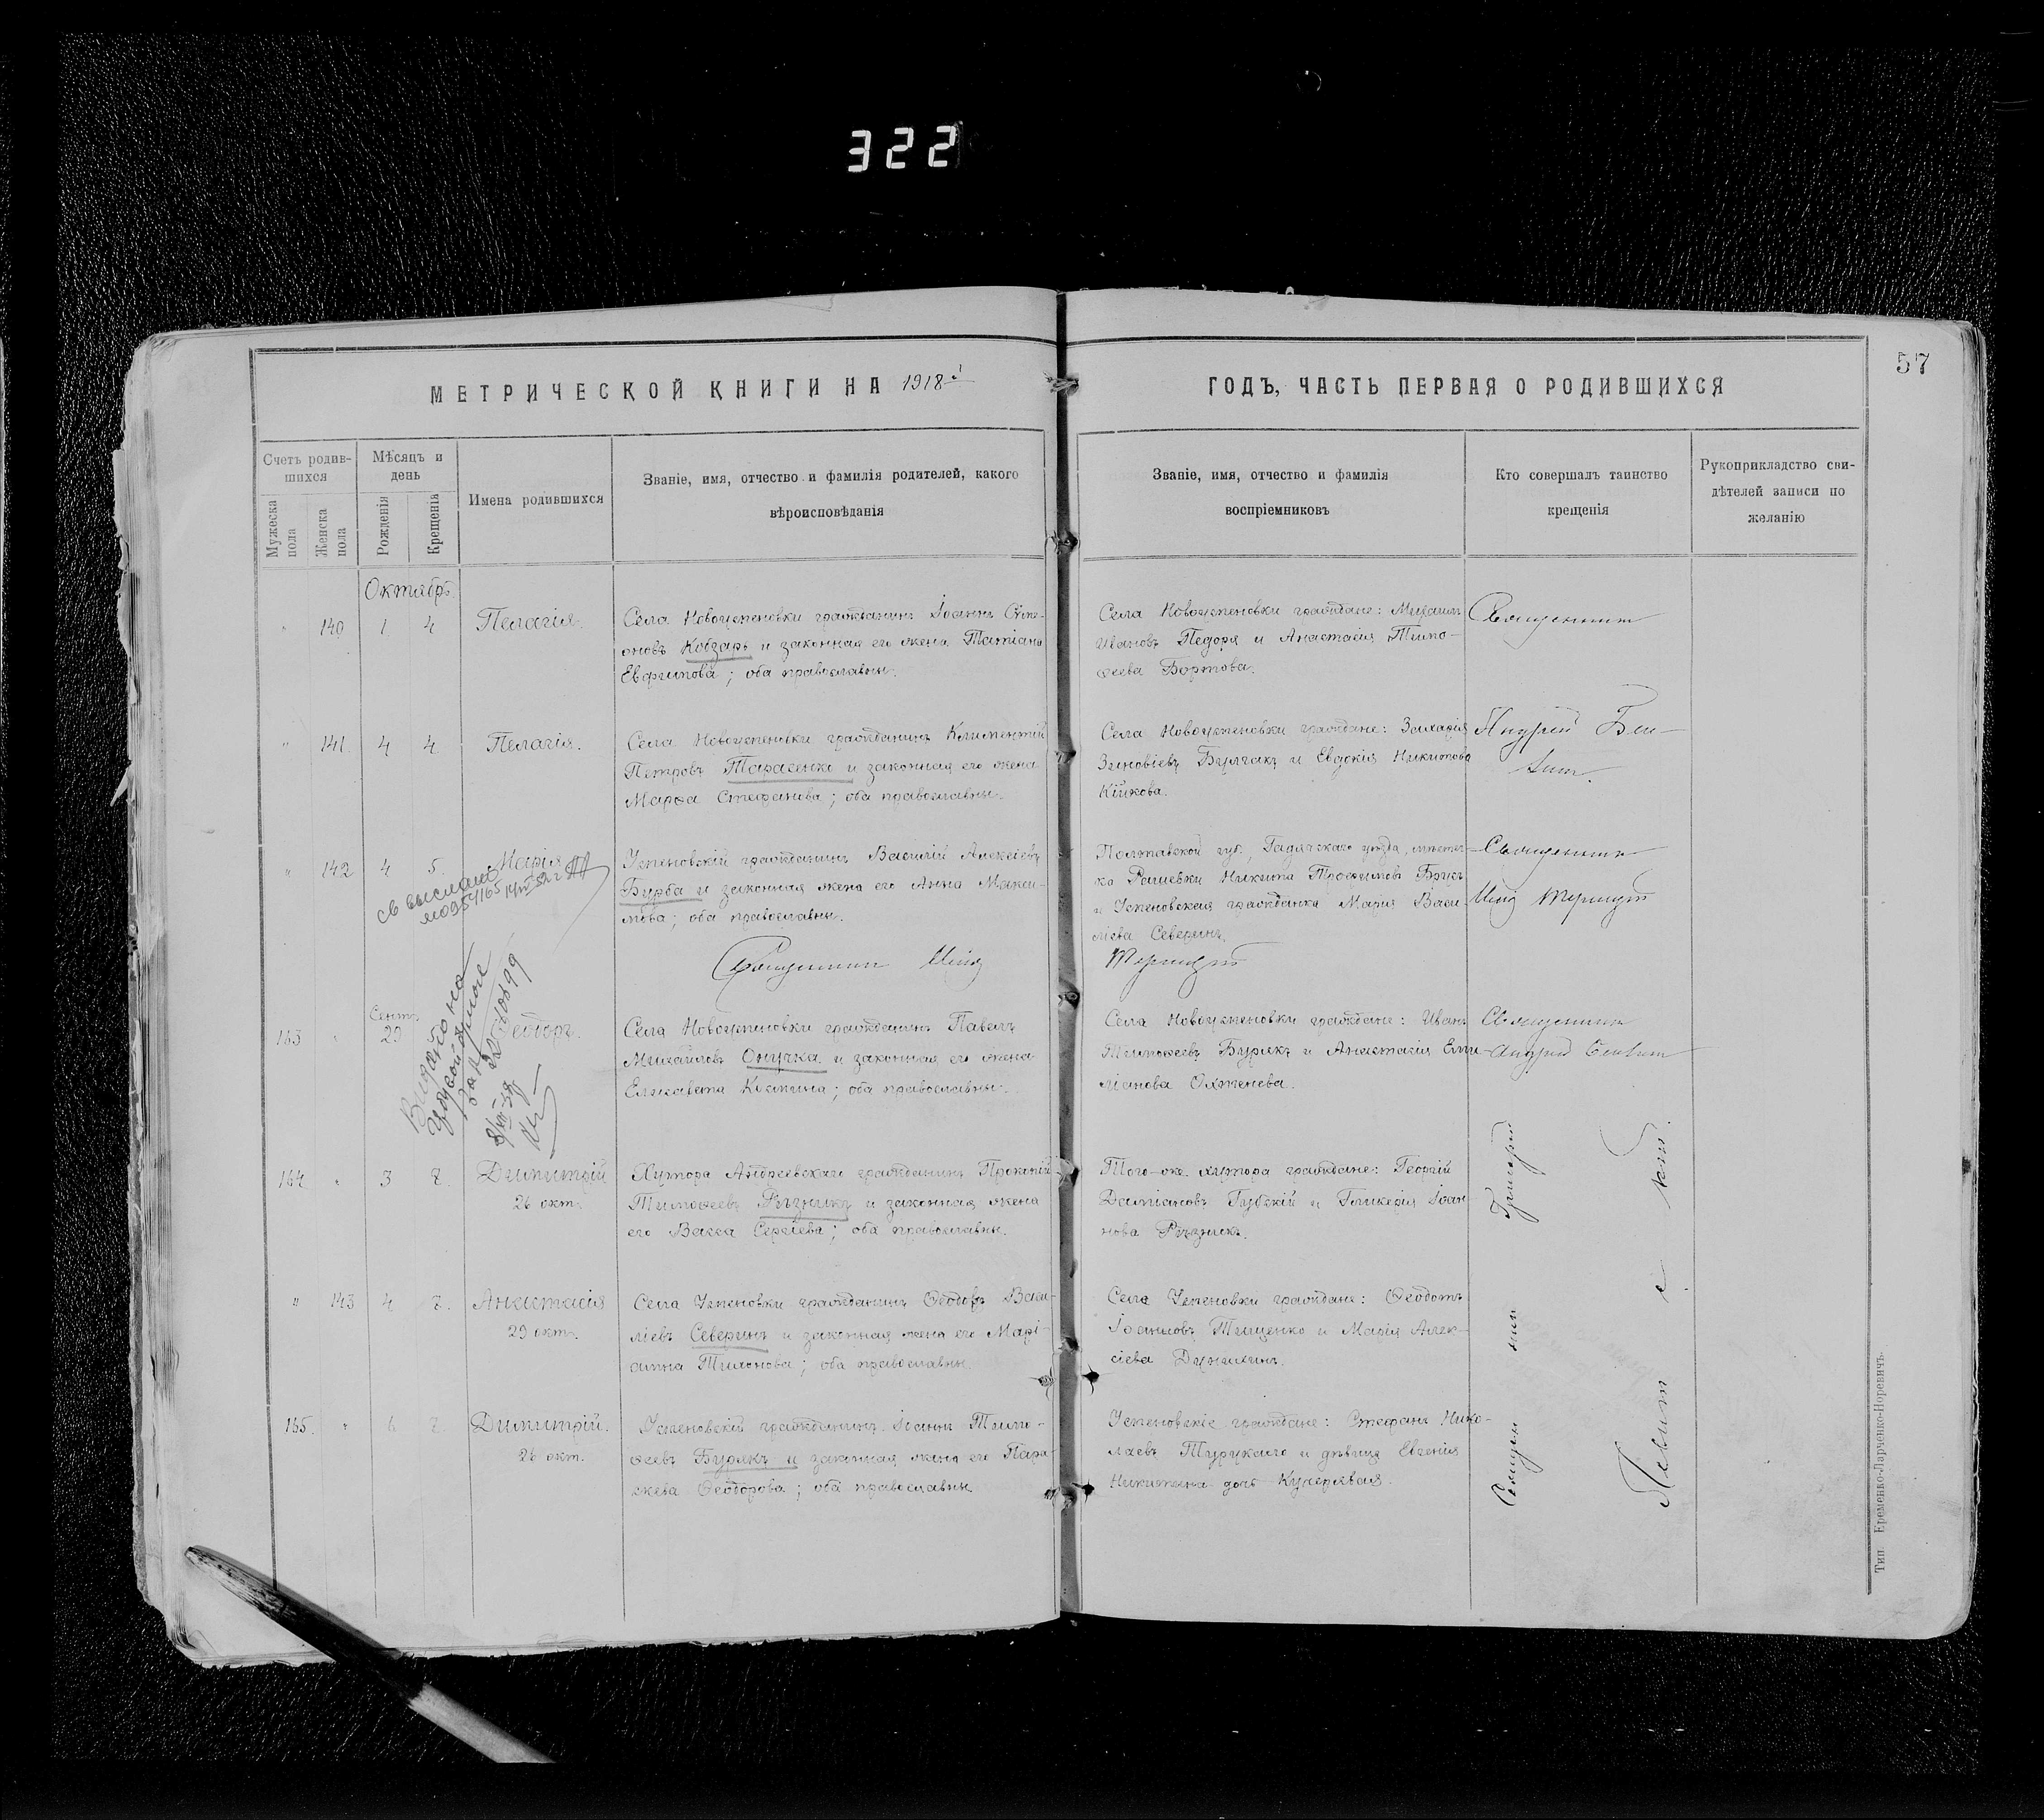 322
57
МЕТРИЧЕСКОЙ КНИГИ НА 1918 й
ГОДЪ, ЧАСТЬ ПЕРВАЯ О РОДИВШИХСЯ
Счетъ родив-
шихся
Мужеска
пола
Женска
пола
Мѣсяцъ и
день
Рожденія
Крещенія
Имена родившихся
Званіе, имя, отчество и фамилія родителей, какого
вѣроисповѣданія
Званіе, имя, отчество и фамилія
воспріемниковъ
Кто совершалъ таинство
крещенія
Рукоприкладство сви-
дѣтелей записи по
желанію
Октябрь
" 140 1 4 Пелагія.
Села Новоуспеновки гражданинъ Іоаннъ Симе-
оновъ Кобзарь и законная его жена Татіана
Евфимова; оба православны.
Села Новоуспеновки граждане: Михаилъ
Ивановъ Педоря и Анастасія Тимо-
ѳеева Бортова.
Священник
" 141 4 4 Пелагія.
Села Новоуспеновки гражданинъ Климентій
Петровъ Тарасенко и законная его жена
Марѳа Стефанова; оба православны.
Села Новоуспеновки граждане: Захарія
Зиновіевъ Булгакъ и Евдокія
Кійкова.
Андрей
" 142 4 5 Марія
св выслано
Успеновскій гражданинъ Василій Алексіевъ
Бурба и законная жена его Анна Макси-
мова; оба православны.
Полтавской губ., Гадячскаго уѣзда, мѣстеч-
ка Рашевки Никита Трофимовъ
и Успеновская гражданка Марія Васи-
ліева Северинъ.
Священник
Священник
163 " Сент. 29 Ѳеодоръ.
Видано
8/VII-58
Села Новоуспеновки гражданинъ Павелъ
Михайловъ Онучка и законная его жена
Елисавета; оба православны.
Села Новоуспеновки граждане: Иванъ
Тимоѳеевъ Бурякъ и Анастасія Еми-
ліанова
Священник
Андрей
164 " 3 7. Димитрій
26 окт.
Хутора Андреевскаго гражданинъ Прокопій
Тимоѳеевъ Рѣзникъ и законная жена
его Васса Сергіева; оба православны.
Того-же хутора граждане: Георгій
Даміановъ Губскій и Гликерія Іоан-
нова Рѣзникъ.
" 143 4 7. Анастасія
29 окт.
Села Успеновки гражданинъ Ѳеодоръ Васи-
ліевъ Северинъ и законная жена его Марі-
анна; оба православны.
Села Успеновки граждане: Ѳеодотъ
Іоанновъ Тищенко и Марія Алек-
сіева
165. " 6 7. Димитрій.
26 окт.
Успеновскій гражданинъ Іоаннъ Тимо-
ѳеевъ Бурякъ и законная жена его Пара-
скева Ѳеодорова; оба православны
Успеновскіе граждане: Стефанъ Нико-
лаевъ и дѣвица Евгенія
Никитина дочь Кучерявая.
Священник Григорій
Тип. Еременко-Ларченко-Норевичъ.